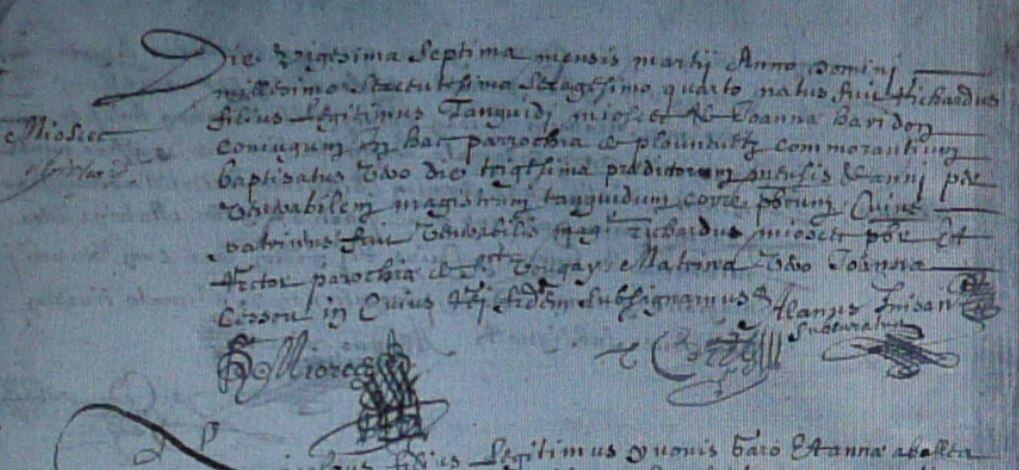 Die vigesima septima mensis martij Anno Domini
millesimo sexcentesimo sexagesimo quarto natus fuit Richardus
filius legitimus Tanguidi miorcec & Joanna baridon
coniugum in hac parrochia de plouneventz commorantium
baptisatus vero die trigesima prædictorum mensis & anni per
venerabilem magistrum tanguidum corre pbrum Cuius
patrinus fuit venerabilis magr richardus miorcec pbr Et
Rector parochia de Sti Vougay Matrina vero Joanna
in Cuius rei fidem subsignamus Alanus Inisan
Subcuratus
Miorcec
Miorcec
filius legitimus yvonis Caro Et anna aballea